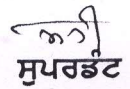 ਸੁਪਰਡੰਟ